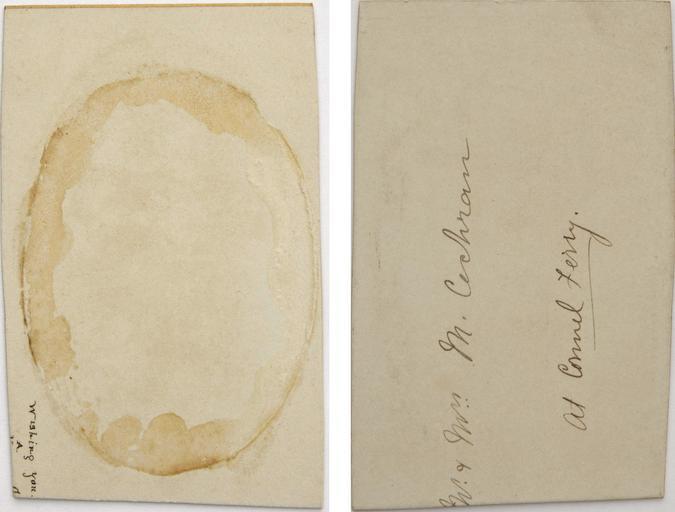 Wishing you
a
& Mrs M. Cochran
At Connel Ferry.